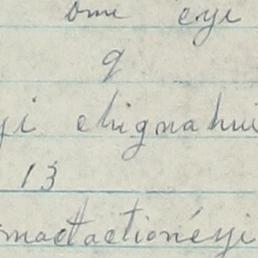 bmi eyi
9
yi chignahui
13
mactactionéyi